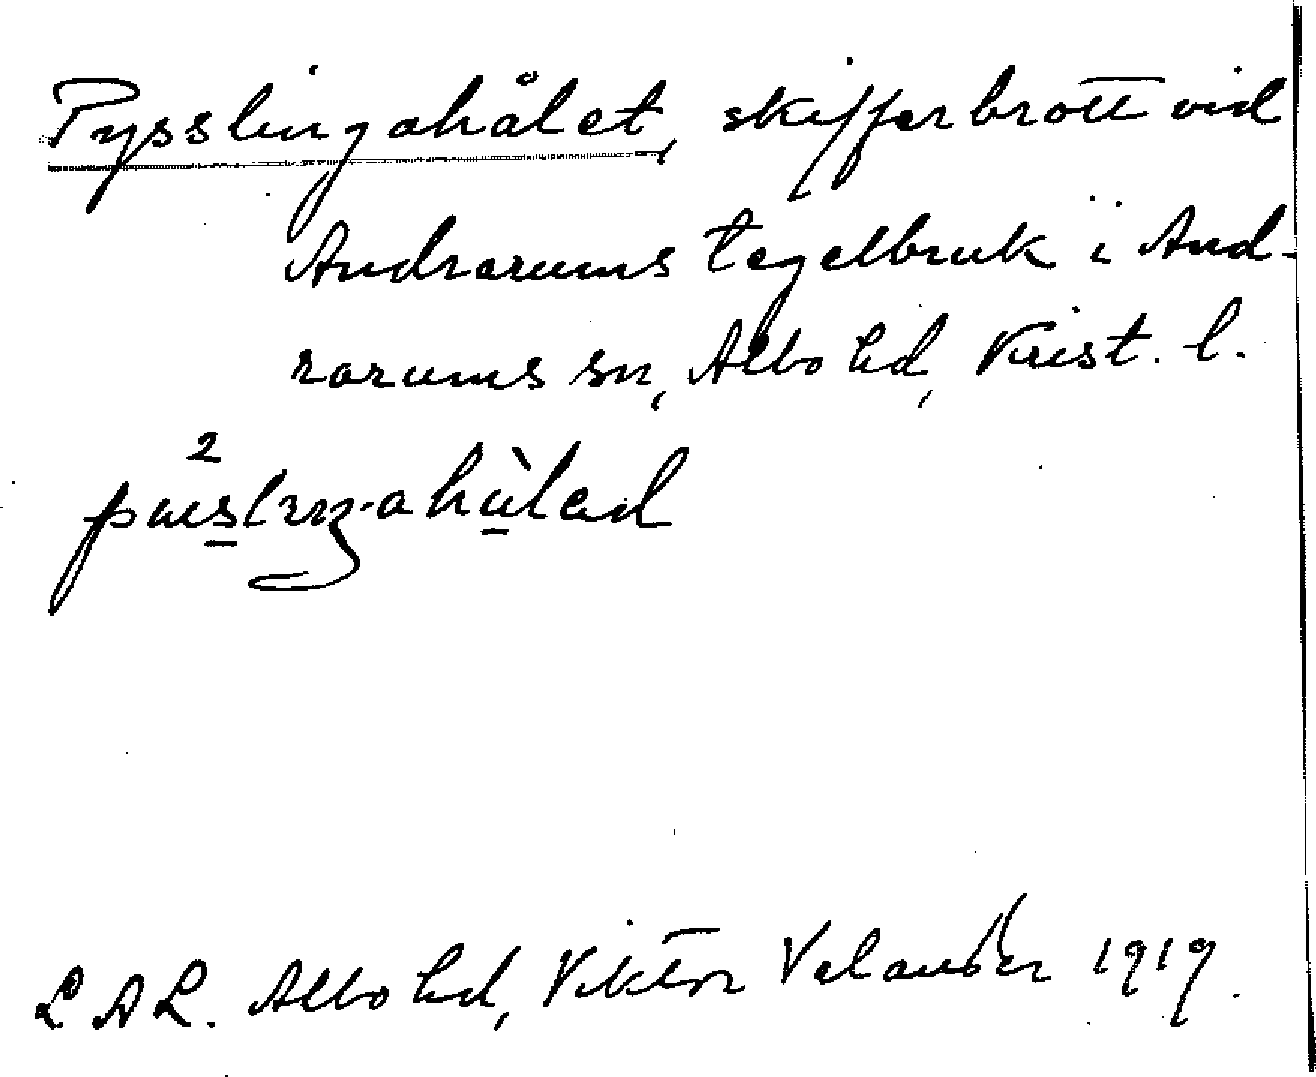 Pysslingahålet, skifferbrott vid
Andrarums tegelbruk i And-
rarums sn, Albo hd, Krist. l.
2
LAL. Albo hd, Viktor Velander 1919.